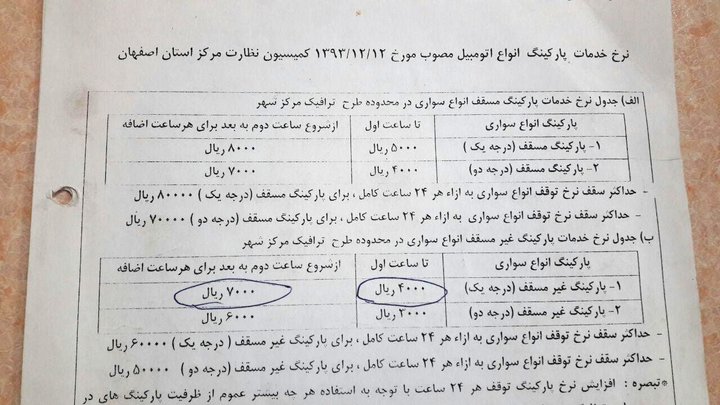 نرخ خدمات پارکینگ انواع اتومبیل مصوب مورخ ۱۳۹۳/۱۲/۱۲ کمیسیون نظارت مرکز استان اصفهان
الف) جدول نرخ خدمات پارکینگ مسقف انواع سواری در محدوده طرح ترافیک مرکز شهر
پارکینگ انواع سواری تا ساعت اول ازشروع ساعت دوم به بعد برای هرساعت اضافه
۱- پارکینگ مسقف (درجه یک) ۵۰۰۰ ریال ۸۰۰۰ ریال
۲- پارکینگ مسقف (درجه دو) ۴۰۰۰ ریال ۷۰۰۰ ریال
- حداکثر سقف نرخ توقف انواع سواری به ازاء هر ۲۴ ساعت کامل ، برای پارکینگ مسقف (درجه یک ) ۸۰۰۰۰ ریال
- حداکثر سقف نرخ توقف انواع سواری به ازاء هر ۲۴ ساعت کامل ، برای پارکینگ مسقف (درجه دو ) ۷۰۰۰۰ ریال
ب) جدول نرخ خدمات پارکینگ غیر مسقف انواع سواری در محدوده طرح ترافیک مرکز شهر
پارکینگ انواع سواری تا ساعت اول ازشروع ساعت دوم به بعد برای هرساعت اضافه
۱- پارکینگ غیر مسقف (درجه یک) ۴۰۰۰ ریال ۷۰۰۰ ریال
۲- پارکینگ غیر مسقف (درجه دو) ۳۰۰۰ ریال ۶۰۰۰ ریال
- حداکثر سقف نرخ توقف انواع سواری به ازاء هر ۲۴ ساعت کامل ، برای پارکینگ غیر مسقف ( درجه یک ) ۶۰۰۰۰ ریال
- حداکثر سقف نرخ توقف انواع سواری به ازاء هر ۲۴ ساعت کامل ، برای پارکینگ غیر مسقف (درجه دو ) ۵۰۰۰۰ ریال
*تبصره : افزایش نرخ پارکینگ توقف هر ۲۴ ساعت با توجه به استفاده هر چه بیشتر عموم از ظرفیت پارکینگ های در